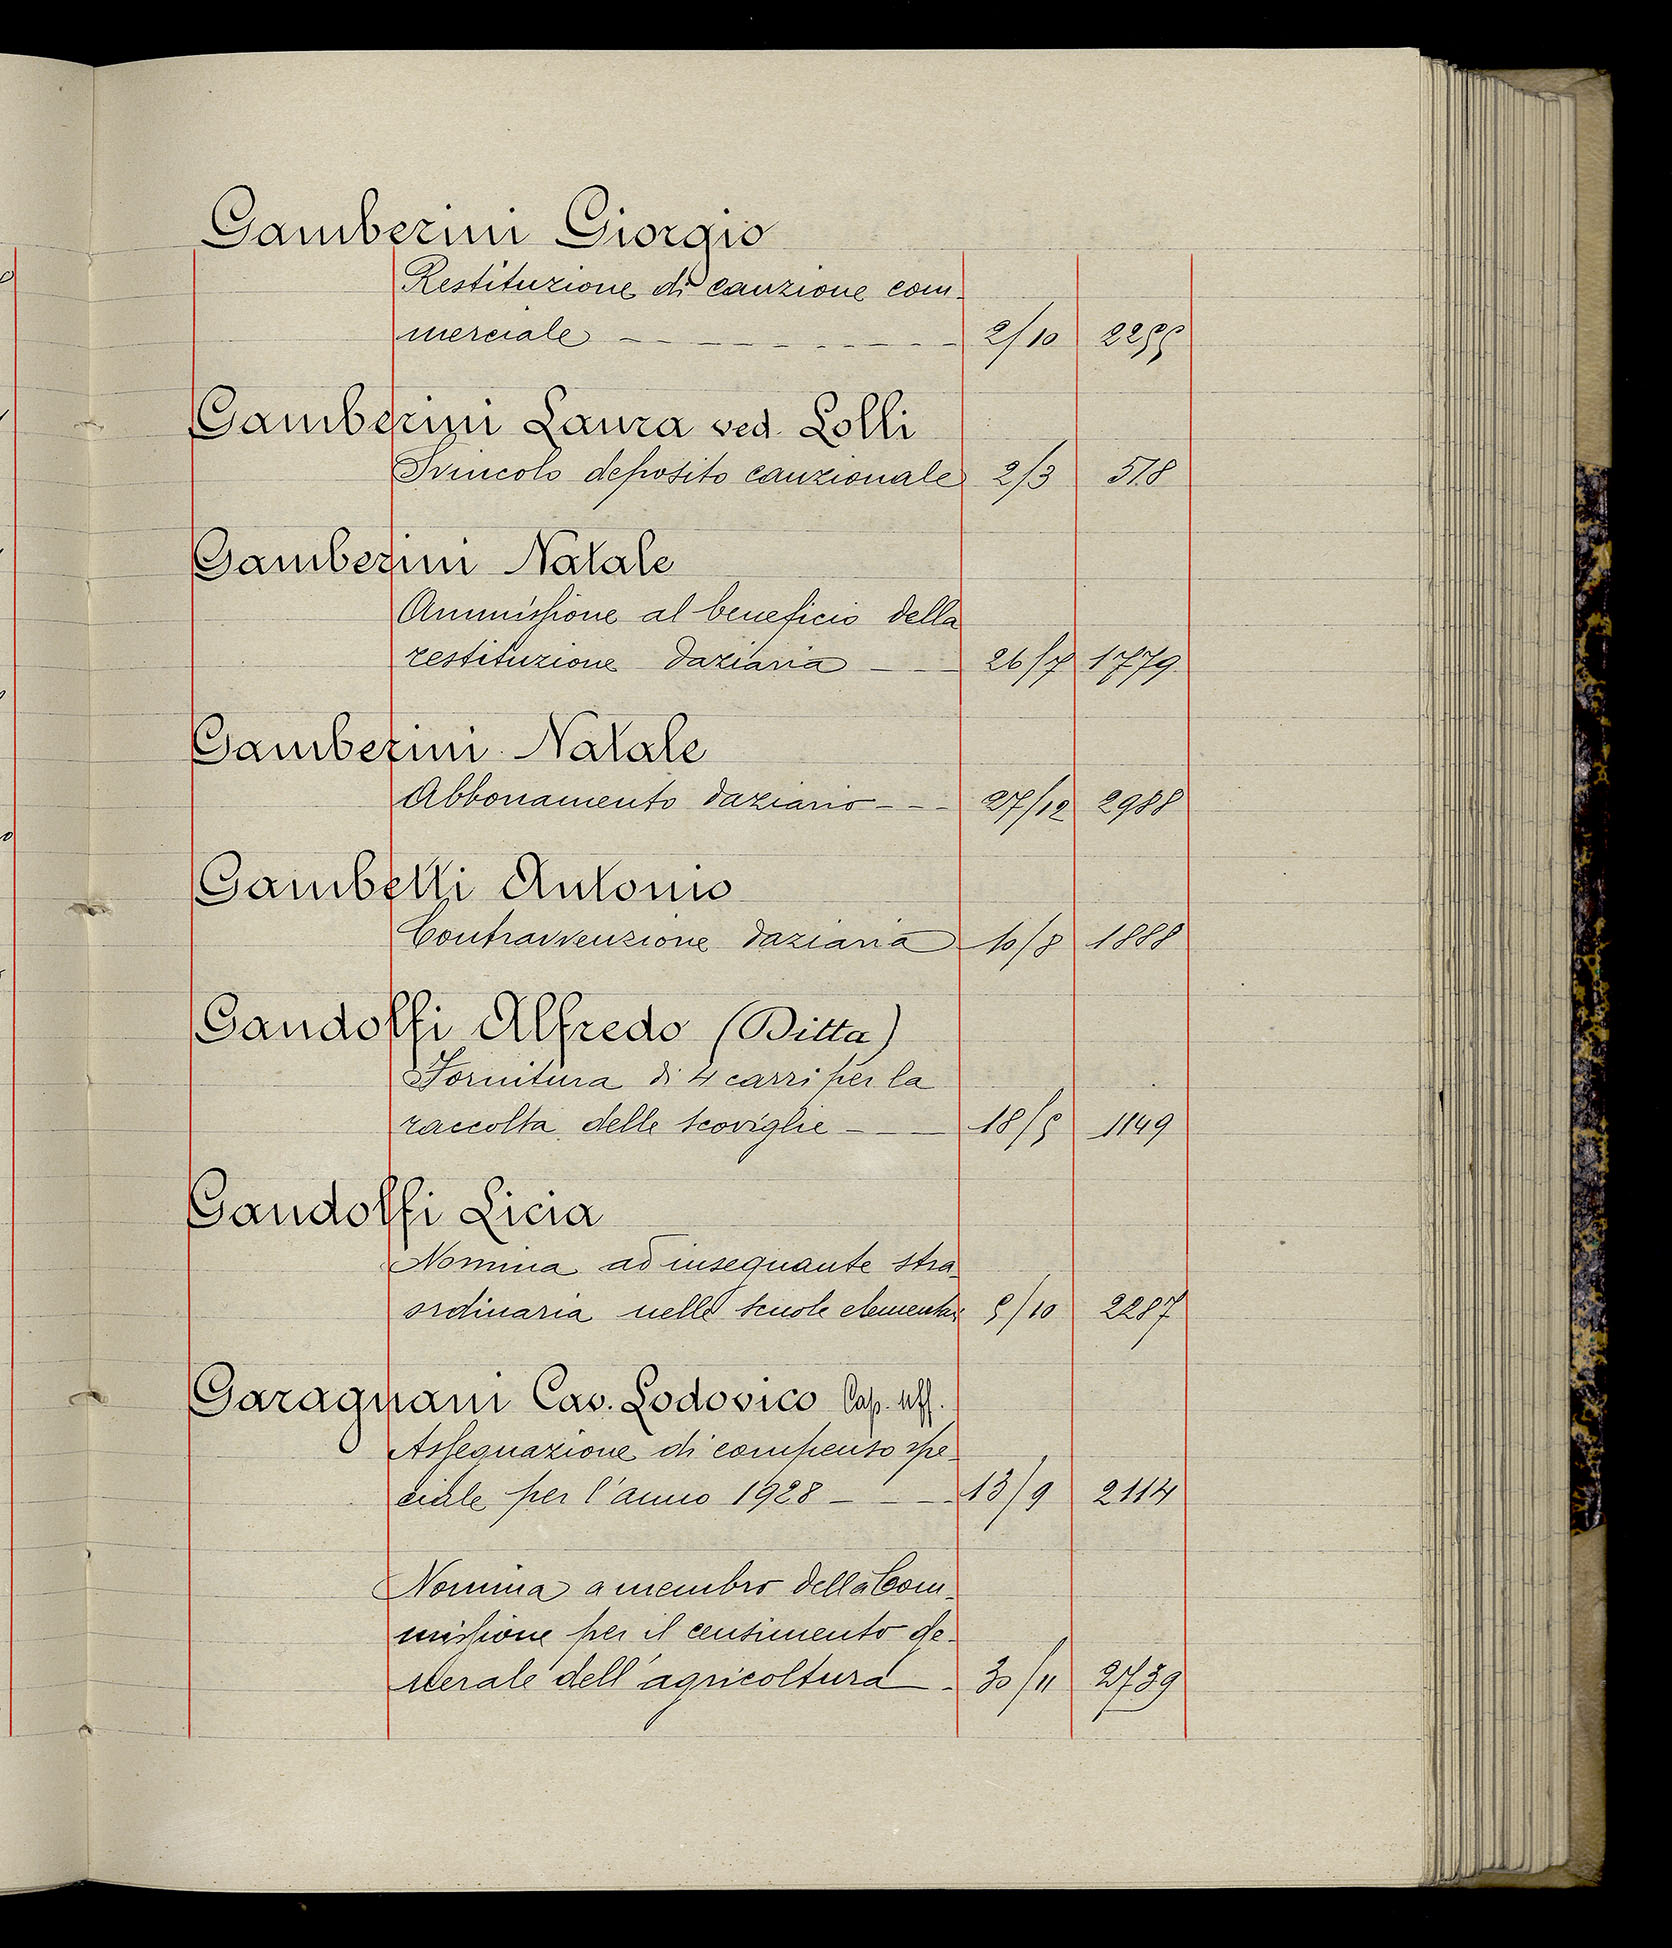 Gamberini Giorgio
Restituzione di cauzione com-
merciale 2/10 2255
Gamberini Laura ved. Lolli
Svincolo deposito cauzionale 2/3 518
Gamberini Natale
Ammissione al beneficio della
restituzione daziaria 26/7 1779
Gamberini Natale
Abbonamento daziario 27/12 2988
Gambetti Antonio
Contravvenzione daziaria 10/8 1888
Gandolfi Alfredo (Ditta)
Fornitura di 4 carri per la
raccolta delle scoviglie 18/5 1149
Gandolfi Licia
Nomina ad insegnante stra-
ordinaria nelle scuole elementari 5/10 2287
Garagnani Cav. Lodovico Cap. Uff.
Assegnazione di compenso spe-
ciale per l'anno 1928 13/9 2114
Nomina a membro della Com-
missione per il censimento ge-
nerale dell'agricoltura 30/11 2739